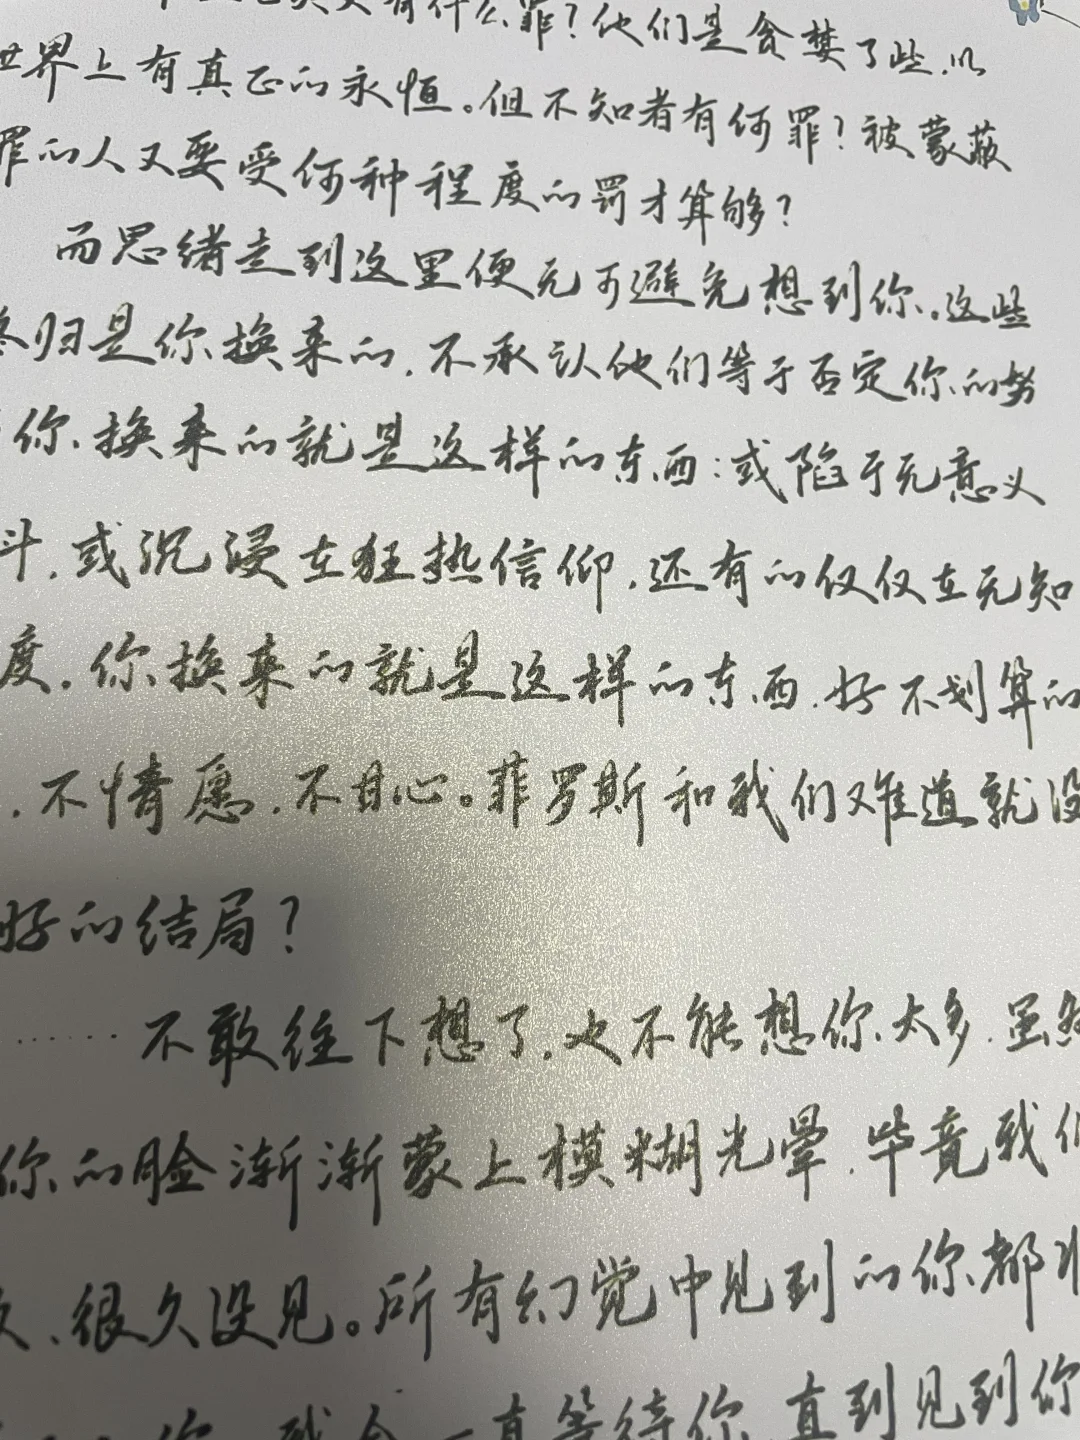 有什么罪？他们是贪婪了些，以
世界上有真正的永恒。但不知者有何罪？被蒙蔽
罪的人又要受何种程度的罚才算够？
而思绪走到这里便无可避免想到你。这些
终归是你换来的，不承认他们等于否定你的努
你换来的就是这样的东西：或陷于无意义
斗，或沉浸在狂热信仰，还有的仅仅在无知
度。你换来的就是这样的东西，好不划算的
，不情愿，不甘心。菲罗斯和我们难道就没
好的结局？
……不敢往下想了，也不能想你太多，虽然
你的脸渐渐蒙上模糊光晕，毕竟我们
久、很久没见。所有幻觉中见到的你都
你，我会一直等待你，直到见到你